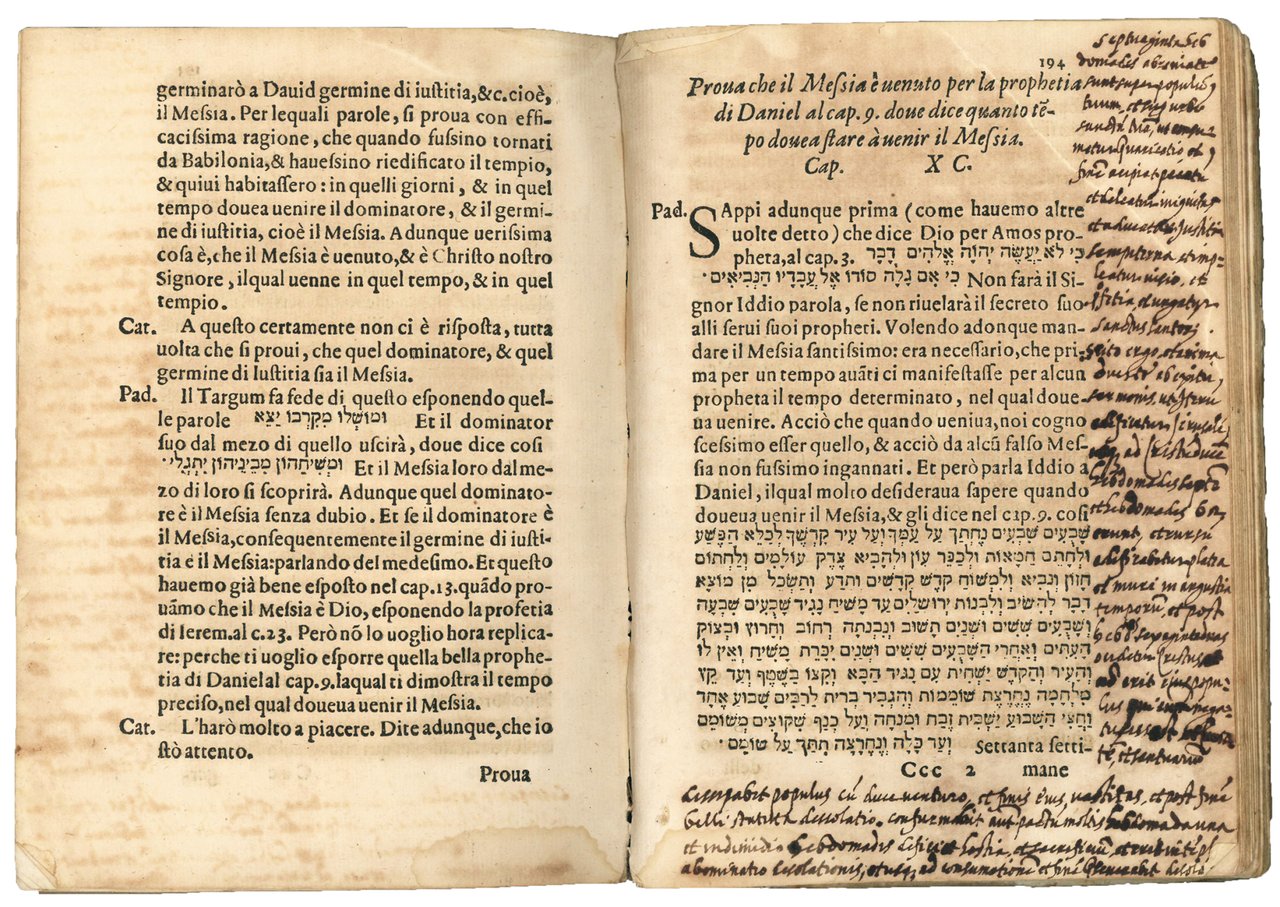 germinarò a Dauid germine di iustitia,&c.cioè,
il Messia. Per lequali parole, si proua con effi-
cacissima ragione, che quando fussino tornati
da Babilonia,& hauessino riedificato il tempio,
& quiui habitassero: in quelli giorni, & in quel
tempo douea uenire il dominatore, & il germi-
ne di iustitia, cioè il Messia. Adunque uerissima
cosa è,che il Messia è uenuto,& è Christo nostro
Signore, ilqual uenne in quel tempo, & in quel
tempio.
Cat. A questo certamente non ci è risposta, tutta
uolta che si proui, che quel dominatore, & quel
germine di Iustitia sia il Messia.
Pad. Il Targum fa fede di questo esponendo quel-
le parole ומושלו מקרבו יצא Et il dominator
suo dal mezo di quello uscirà, doue dice cosi
ומשיחהון מביניהון יתגלי· Et il Messia loro dal me-
zo di loro si scoprirà. Adunque quel dominato-
re è il Messia senza dubio. Et se il dominatore è
il Messia,consequentemente il germine di iusti-
tia è il Messia:parlando del medesimo. Et questo
hauemo già bene esposto nel cap.13.quãdo pro-
uãmo che il Messia è Dio, esponendo la profetia
di Ierem.al c.23. Però nõ lo uoglio hora replica-
re: perche ti uoglio esporre quella bella prophe-
tia di Daniel al cap.9.laqual ti dimostra il tempo
preciso,nel qual doueua uenir il Messia.
Cat. L'harò molto a piacere. Dite adunque,che io
stò attento.
Proua
194
Proua che il Messia è uenuto per la prophetia
di Daniel al cap. 9. doue dice quanto tẽ-
po douea stare à uenir il Messia.
Cap. X C.
Pad. SAppi adunque prima (come hauemo altre
uolte detto) che dice Dio per Amos pro-
pheta,al cap.3. כי לא יעשה יהוה אלהים דבר
כי אם גלה סודו אל עבדיו הנביאים· Non farà il Si-
gnor Iddio parola, se non riuelarà il secreto suo
alli serui suoi propheti. Volendo adonque man-
dare il Messia santissimo: era necessario,che pri-
ma per un tempo auãti ci manifestasse per alcun
propheta il tempo determinato, nel qual doue-
ua uenire. Acciò che quando ueniua,noi cogno
scessimo esser quello, & acciò da alcũ falso Mes-
sia non fussimo ingannati. Et però parla Iddio a
Daniel, ilqual molto desideraua sapere quando
doueua uenir il Messia,& gli dice nel cap.9. cosi
שבעים שבעים נחתך על עמך ועל עיר קדשך לכלא הפשע
ולחתם חטאות ולכפר עון ולהביא צדק עולמים ולחתום
חזון ונביא ולמשוח קדש קדשים ותדע ותשכל מן מוצא
דבר להשיב ולבנות ירושלים עד משיח נגיד שבעים שבעה
ושבעים ששים ושנים תשוב ונבנתה רחוב וחרוץ ובצוק
העתים ואחרי השבעים ששים ושנים יכרת משיח ואין לו
והעיר והקדש ישחית עם נגיד הבא וקצו בשטף ועד קץ
מלחמה נחרצת שוממות והגביר ברית לרבים שבוע אחד
וחצי השבוע ישבית זבח ומנחה ועל כנף שקוצים משומם
ועד כלה ונחרצה תתך על שומם· Settanta setti-
Ccc 2 mane
septuaginta heb
domadis abreviate
sunt super populũ
tuum, et sup urbē
sanctã tuã, ut
finē accipiat peccatũ
et deleatur iniquitas
et adducatur Justitia
sempiterna et imp-
leatur visio, et
sanctus sanctorũ.
scito ergo, et anima
sermonis, ut iterũ
edificetur
hebdomadis septē
et hebdomadis 62
erunt, et rursũ
edificabitur platea
et muri in angustia
temporum, et post
occidetur Christus, et
nō erit eius popu-
lus qui eum nega-
turus est
et sanctuariũ
dissipabit populus cũ duce venturo, et finis eius, vastitas, et post finē
belli statuta dessolatio. confirmabit aut pactũ multis hebdomada una
et in dimidio hebdomadis deficiet hostia, et sacrificiũ, et erit in tēpl
abominatio desolationis, et usq; ad consumationē et finē